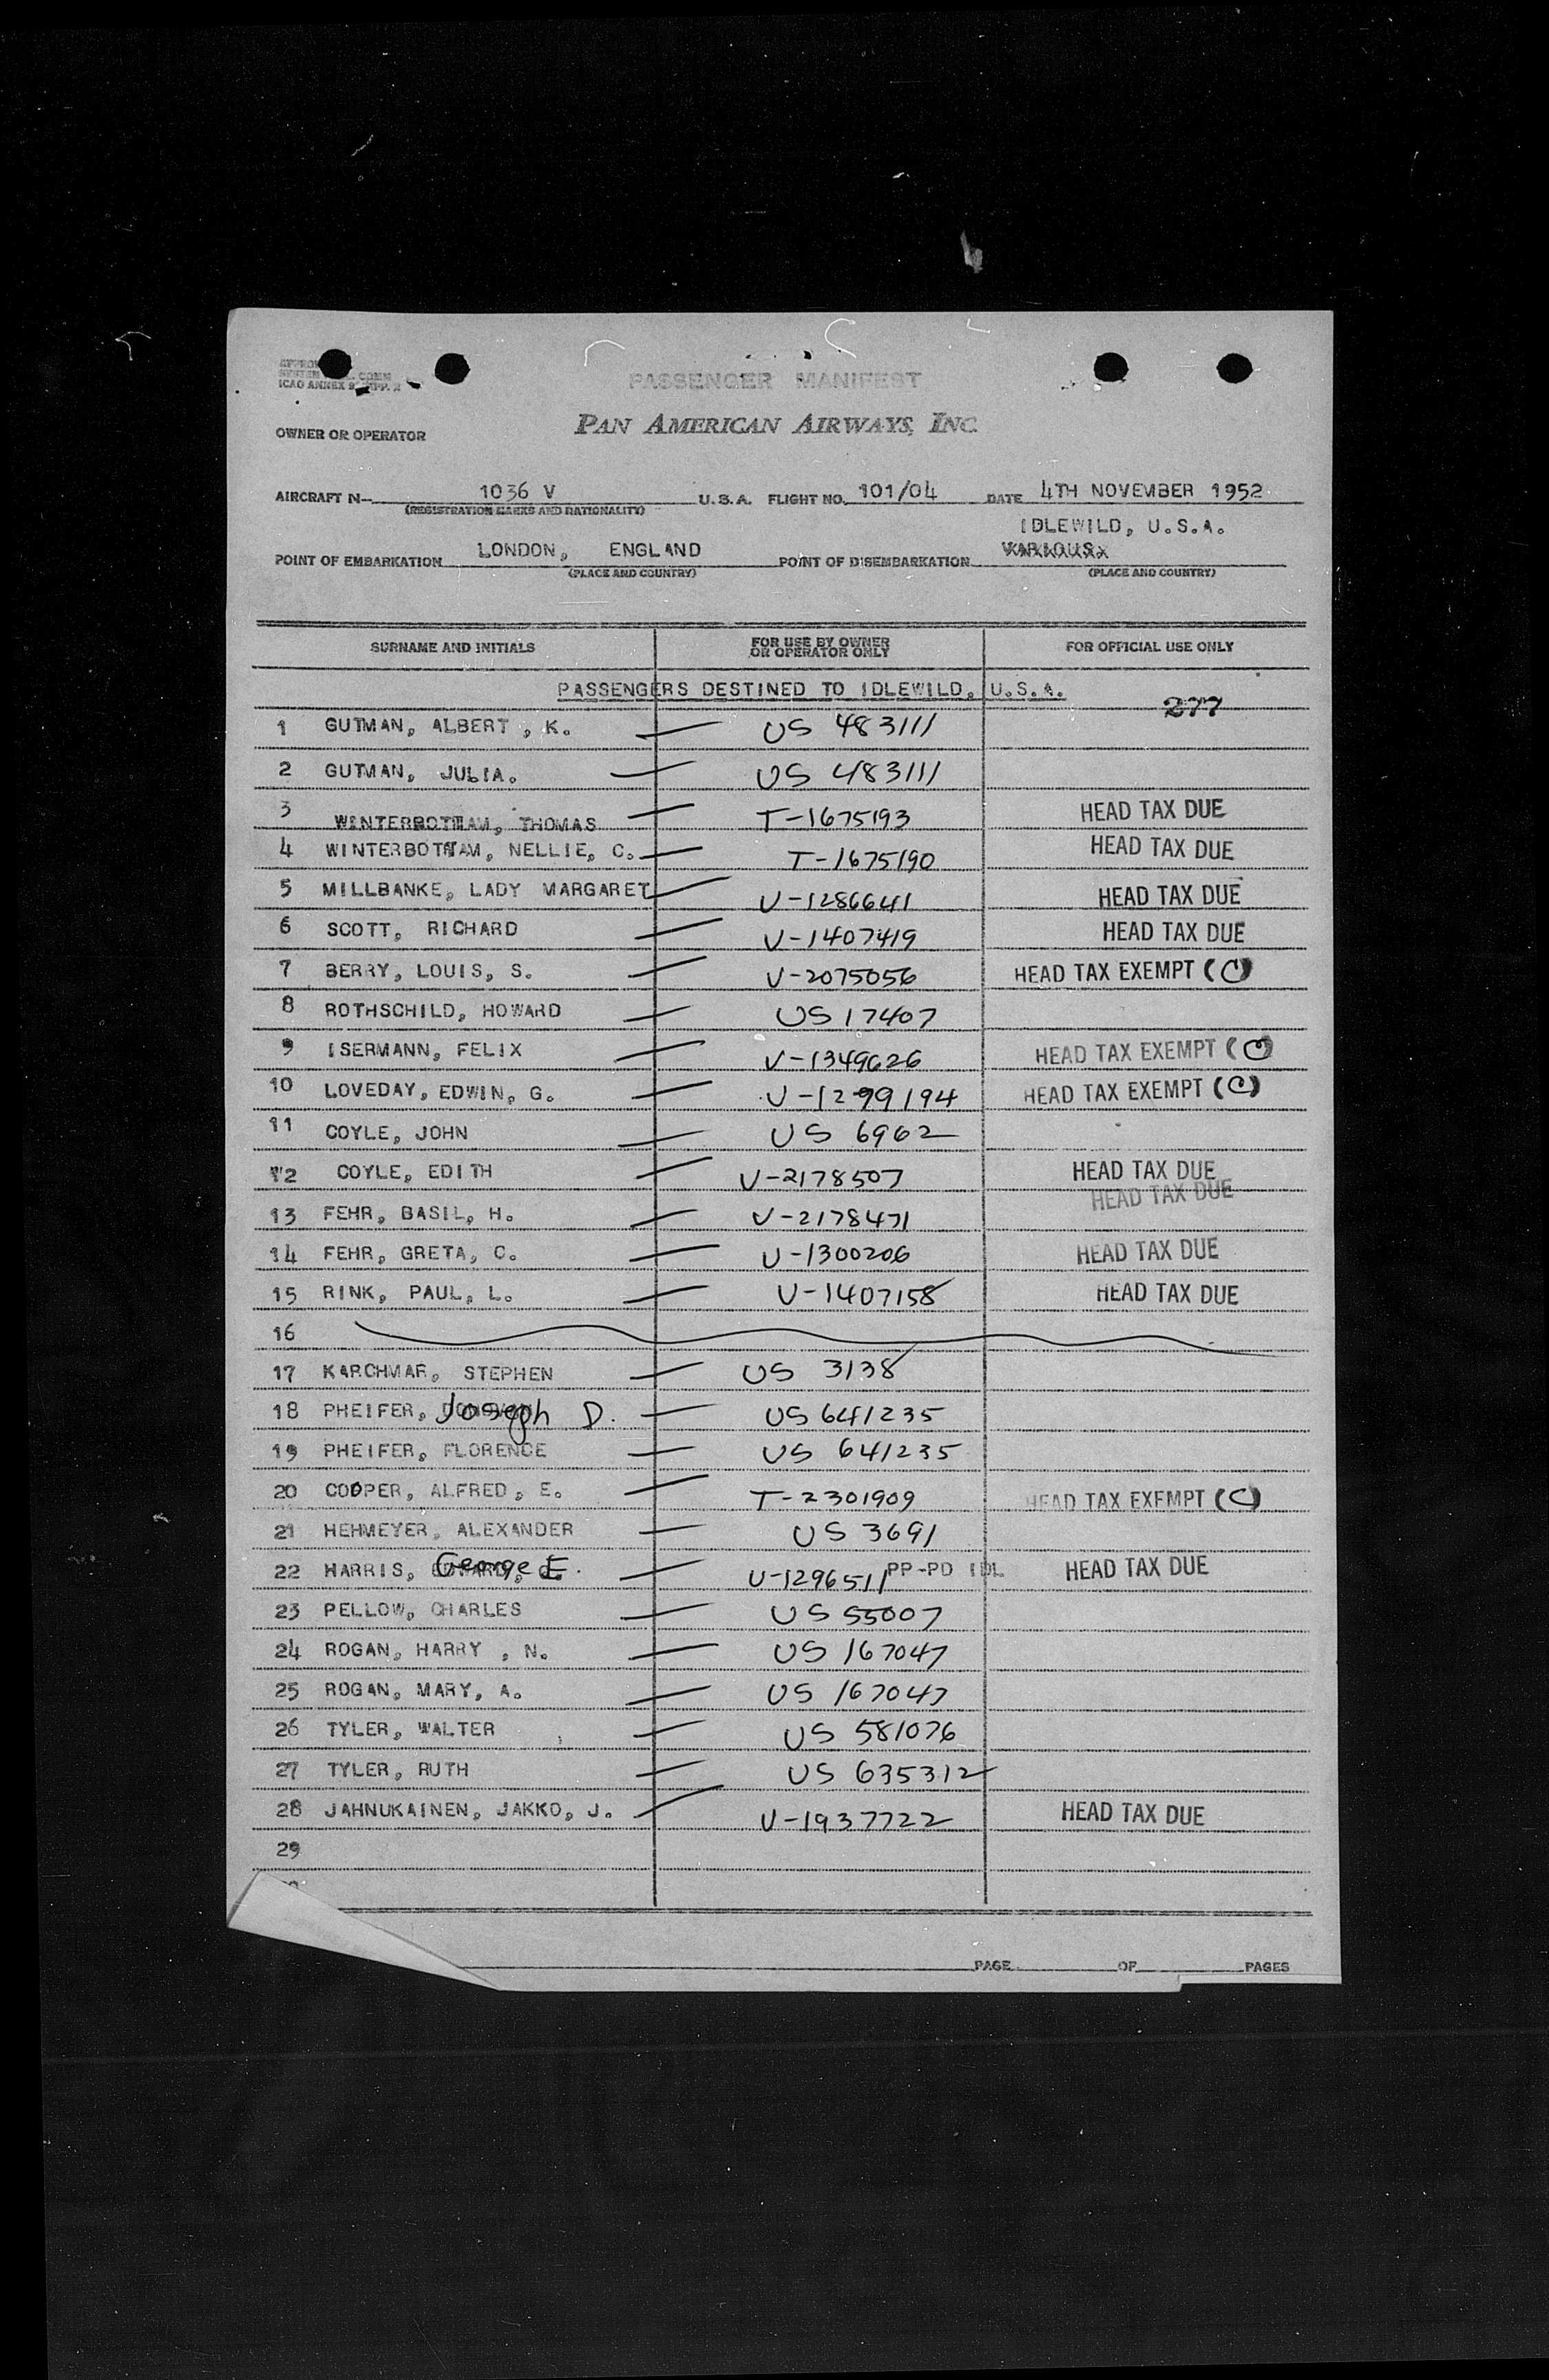 ICAO ANNEX 9
PASSENGER MANIFEST
OWNER OR OPERATOR
PAN AMERICAN AIRWAYS, INC.
AIRCRAFT N- 1036 V U.S.A. FLIGHT NO. 101/04 DATE 4TH NOVEMBER 1952
(REGISTRATION MARKS AND NATIONALITY)
IDLEWILD, U.S.A.
POINT OF EMBARKATION LONDON, ENGLAND POINT OF DISEMBARKATION VARIOUS.
(PLACE AND COUNTRY) (PLACE AND COUNTRY)
SURNAME AND INITIALS FOR USE BY OWNER OR OPERATOR ONLY FOR OFFICIAL USE ONLY
PASSENGERS DESTINED TO IDLEWILD, U.S.A.
277
1 GUTMAN, ALBERT , K. US 483111
2 GUTMAN, JULIA. US 483111
3 WINTERBOTTAM, THOMAS T-1675193 HEAD TAX DUE
4 WINTERBOTTAM, NELLIE, C. T-1675190 HEAD TAX DUE
5 MILLBANKE, LADY MARGARET V-1286641 HEAD TAX DUE
6 SCOTT, RICHARD V-1407419 HEAD TAX DUE
7 BERRY, LOUIS, S. V-2075056 HEAD TAX EXEMPT (C)
8 ROTHSCHILD, HOWARD US 17407
9 ISERMANN, FELIX V-1349626 HEAD TAX EXEMPT (C)
10 LOVEDAY, EDWIN, G. V-1299194 HEAD TAX EXEMPT (C)
11 COYLE, JOHN US 6962
12 COYLE, EDITH V-2178507 HEAD TAX DUE
HEAD TAX DUE
13 FEHR, BASIL, H. V-2178471
14 FEHR, GRETA, C. V-1300206 HEAD TAX DUE
15 RINK, PAUL, L. V-1407158 HEAD TAX DUE
16
17 KARCHMAR, STEPHEN US 3138
18 PHEIFER, Joseph D. US 641235
19 PHEIFER, FLORENCE US 641235
20 COOPER, ALFRED, E. T-2301909 HEAD TAX EXEMPT (C)
21 HEHMEYER, ALEXANDER US 3691
22 HARRIS, George E. V-1296511 PP-PD IDL HEAD TAX DUE
23 PELLOW, CHARLES US 55007
24 ROGAN, HARRY , N. US 167047
25 ROGAN, MARY, A. US 167047
26 TYLER, WALTER US 581076
27 TYLER, RUTH US 635312
28 JAHNUKAINEN, JAKKO, J. V-1937722 HEAD TAX DUE
29
PAGE OF PAGES